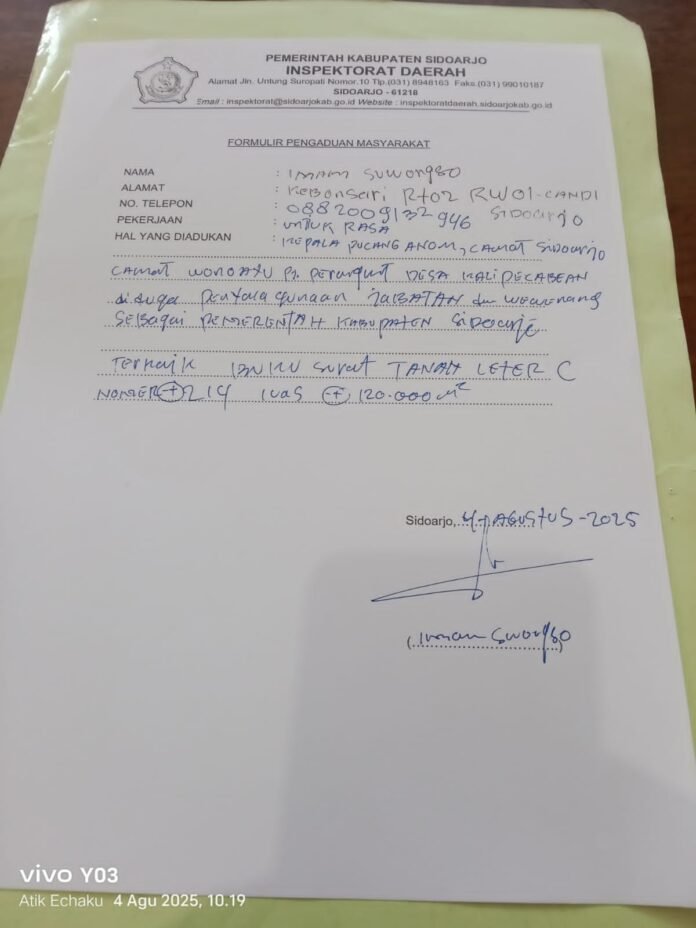 PEMERINTAH KABUPATEN SIDOARJO
INSPEKTORAT DAERAH
Alamat Jln. Untung Suropati Nomor.10 Tlp.(031) 8948163 Faks.(031) 99010187
SIDOARJO - 61218
Email : inspektorat@sidoarjokab.go.id Website : inspektoratdaerah.sidoarjokab.go.id
FORMULIR PENGADUAN MASYARAKAT
NAMA : IMAM SUWONGSO
ALAMAT : Kebonsari Rt02 RW01-CANDI SIDOARJO
NO. TELEPON : 0882009132946
PEKERJAAN : UNTUK RASA
HAL YANG DIADUKAN : KEPALA PUCANG ANOM, CAMAT SIDOARJO
CAMAT WONOAYU Pj. perangkat DESA KALIPECABEAN
diduga JABATAN dan wewenang
SEBAGAI KABUPATEN SIDOARJO
surat TANAH LETER C
NOMER ± 214 luas ± 120.000 M²
Sidoarjo, 4-AGUSTUS-2025
vivo Y03
Atik Echaku 4 Agu 2025, 10.19